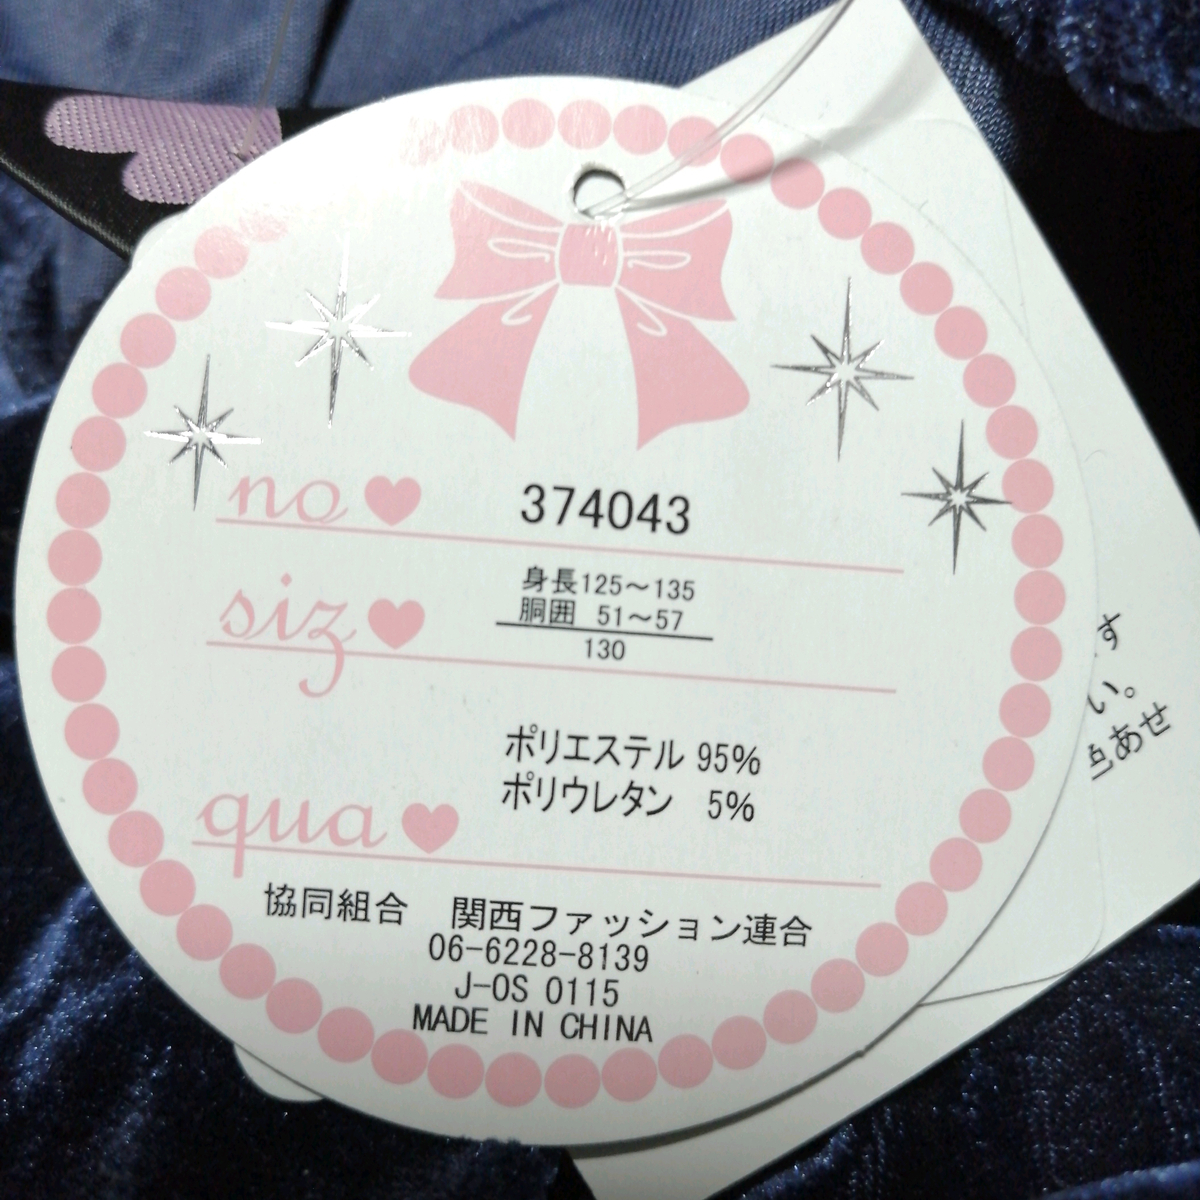 no♥ 374043
身長125～135
siz♥ 胴囲 51～57
130
ポリエステル 95%
ポリウレタン 5%
qua♥
協同組合 関西ファッション連合
06-6228-8139
J-OS 0115
MADE IN CHINA
す
い。
点あせ